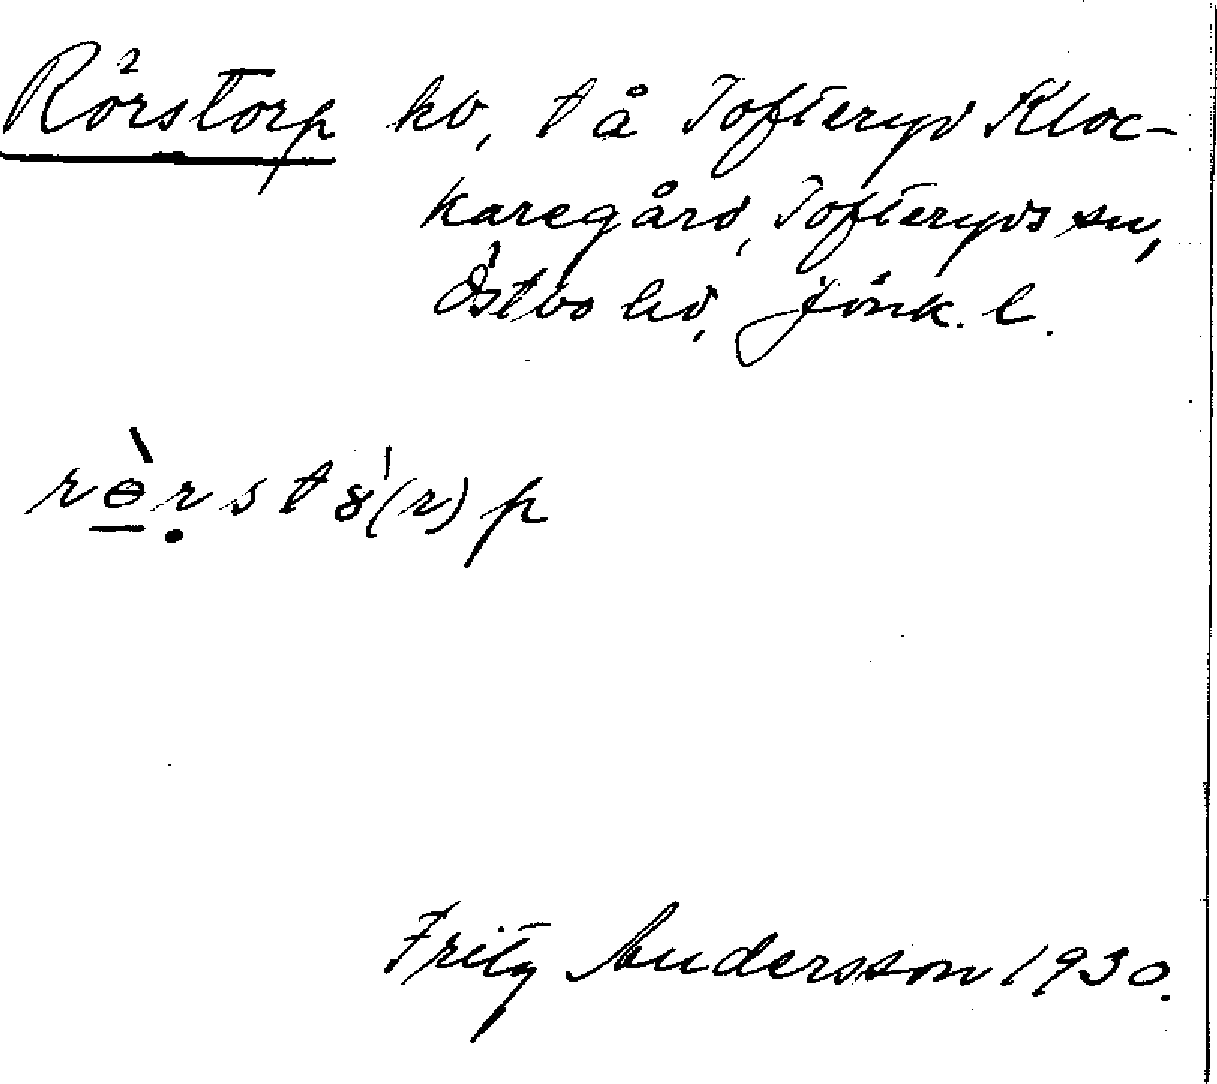 Rörstorp hv, t å Tofteryd Kloc-
karegård, Tofteryds sn,
Östbo hd, Jönk. l.
rө̀rst8́(r)p
Fritz Andersson 1930.